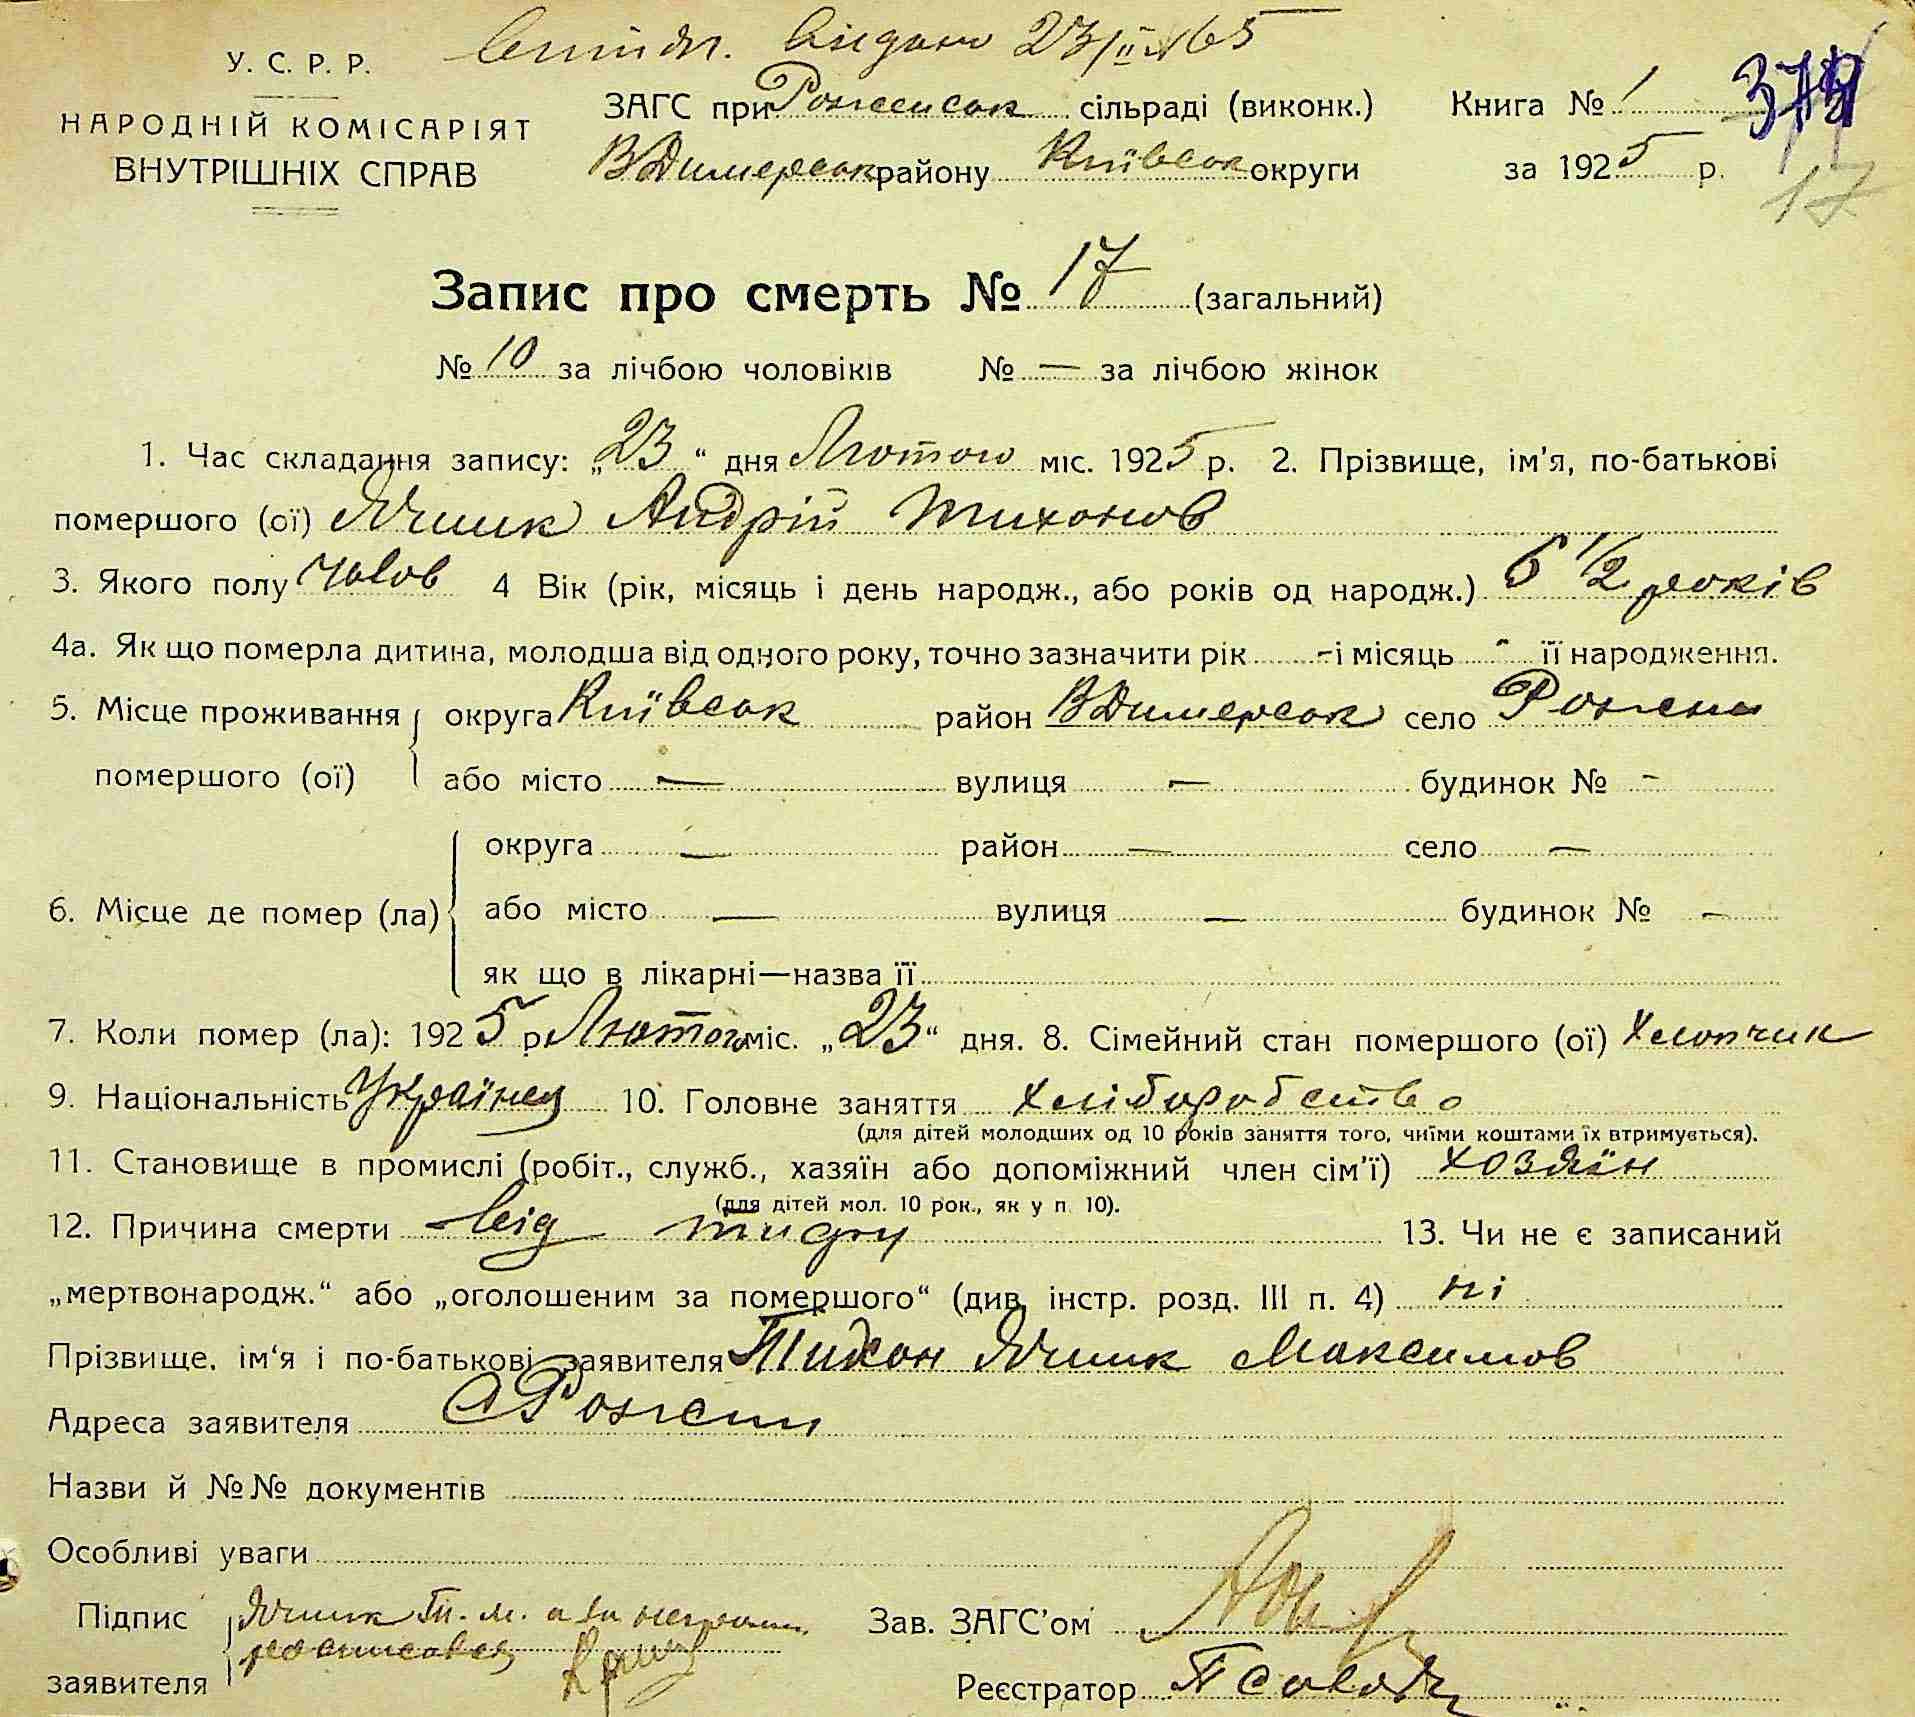 видано 23/II 65
У. С. Р. Р.
НАРОДНІЙ КОМІСАРІЯТ
ВНУТРІШНІХ СПРАВ
ЗАГС при Рожнівськ сільраді (виконк.)
В Димерськ району Київськ округи
Книга № 1
за 1925 р.
17
Запис про смерть № 17 (загальний)
№ 10 за лічбою чоловіків № — за лічбою жінок
1. Час складання запису: „23“ дня Лютого міс. 1925 р. 2. Прізвище, ім'я, по-батькові
помершого (ої) Ячник Андрій Тихонов
3. Якого полу чолов 4 Вік (рік, місяць і день народж., або років од народж.) 5 1/2 років
4а. Як що померла дитина, молодша від одного року, точно зазначити рік - і місяць - її народження.
5. Місце проживання помершого (ої) округа Київськ район В Димерськ село Рожни
або місто — вулиця — будинок № -
6. Місце де помер (ла) округа — район — село —
або місто — вулиця — будинок № -
як що в лікарні—назва її
7. Коли помер (ла): 1925 р. Лютого міс. „23“ дня. 8. Сімейний стан помершого (ої) хлопчик
9. Національність Українец 10. Головне заняття хліборобство
(для дітей молодших од 10 років заняття того, чиїми коштами їх втримується).
11. Становище в промислі (робіт., служб., хазяїн або допоміжний член сім'ї) хозяїн
(для дітей мол. 10 рок., як у п 10).
12. Причина смерти від тифу 13. Чи не є записаний
„мертвонародж.“ або „оголошеним за помершого“ (див. інстр. розд. III п. 4) ні
Прізвище, ім'я і по-батькові заявителя Тихон Ячник Максимов
Адреса заявителя с Рожни
Назви й №№ документів
Особливі уваги
Підпис заявителя Ячник Т. М. а за неграм. росписався
Зав. ЗАГС'ом
Реєстратор